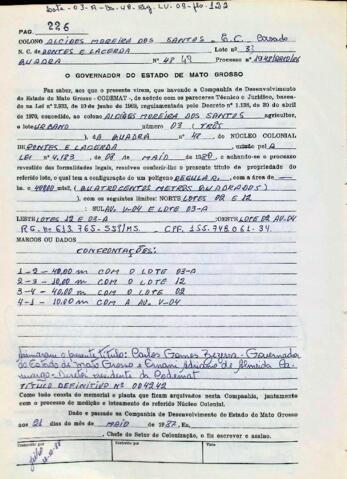 Lote-03-A-Qs.48-Reg.LV.08-flo.122
PAG. 226
COLONO ALCIDES MOREIRA DOS SANTOS E.C. Casado
N. C. de PONTES E LACERDA Lote nº 33
QUADRA Nº 48 48 Processo nº
O GOVERNADOR DO ESTADO DE MATO GROSSO
Faz saber, aos que o presente virem, que havendo a Companhia de Desenvolvimento
do Estado de Mato Grosso - CODEMAT -, de acordo com os pareceres Técnico e Jurídico, basea-
da na Lei nº 2.933, de 19 de junho de 1969, regulamentada pelo Decreto nº 1.138, de 20 de abril
de 1970, concedido, ao colono ALCIDES MOREIRA DOS SANTOS agricultor,
o lote URBANO número 03 (TRÊS)
DA QUADRA nº 48 do NÚCLEO COLONIAL
DE PONTES E LACERDA criado pela
LEI nº 4.183, de 08 de MAIO de 1980, e achando-se o processo
revestido das formalidades legais, resolveu conferir-lhe o presente título de propriedade do
referido lote, o qual tem a configuração de um polígono REGULAR, com a área de
m. 400,00 mts2, (QUATROCENTOS METROS QUADRADOS)
), com os seguintes limites: NORTE LOTES 02 E 12
: SUL AV. V-04 E LOTE 03-A
LESTE LOTES 12 E 03-A :OESTE LOTE 02 AV. 04
RG. Nº 613.765-SSP/MS. CPF. 155.748.061.34.
MARCOS OU DADOS
CONFRONTAÇÕES:
1-2-40,00 m COM O LOTE 03-A
2-3-10,00 m COM O LOTE 12
3-4-40,00 m COM O LOTE 02
4-1-10,00 m COM A AV. V-04
Assinaram o presente título: Carlos Gomes Bezerra-Governador
do Estado de Mato Grosso e Ernani Adriano de Almeida Ca-
margo-Diretor Presidente da Codemat
TÍTULO DEFINITIVO Nº 004242
Como tudo consta do memorial e planta que ficam arquivados nesta Companhia, juntamente
com o processo de medição e loteamento do referido Núcleo Colonial.
Dado e passado na Companhia de Desenvolvimento do Estado de Mato Grosso
aos 21 dias do mês de MAIO de 1987. Eu,
, Chefe do Setor de Colonização, o fiz escrever e assino.